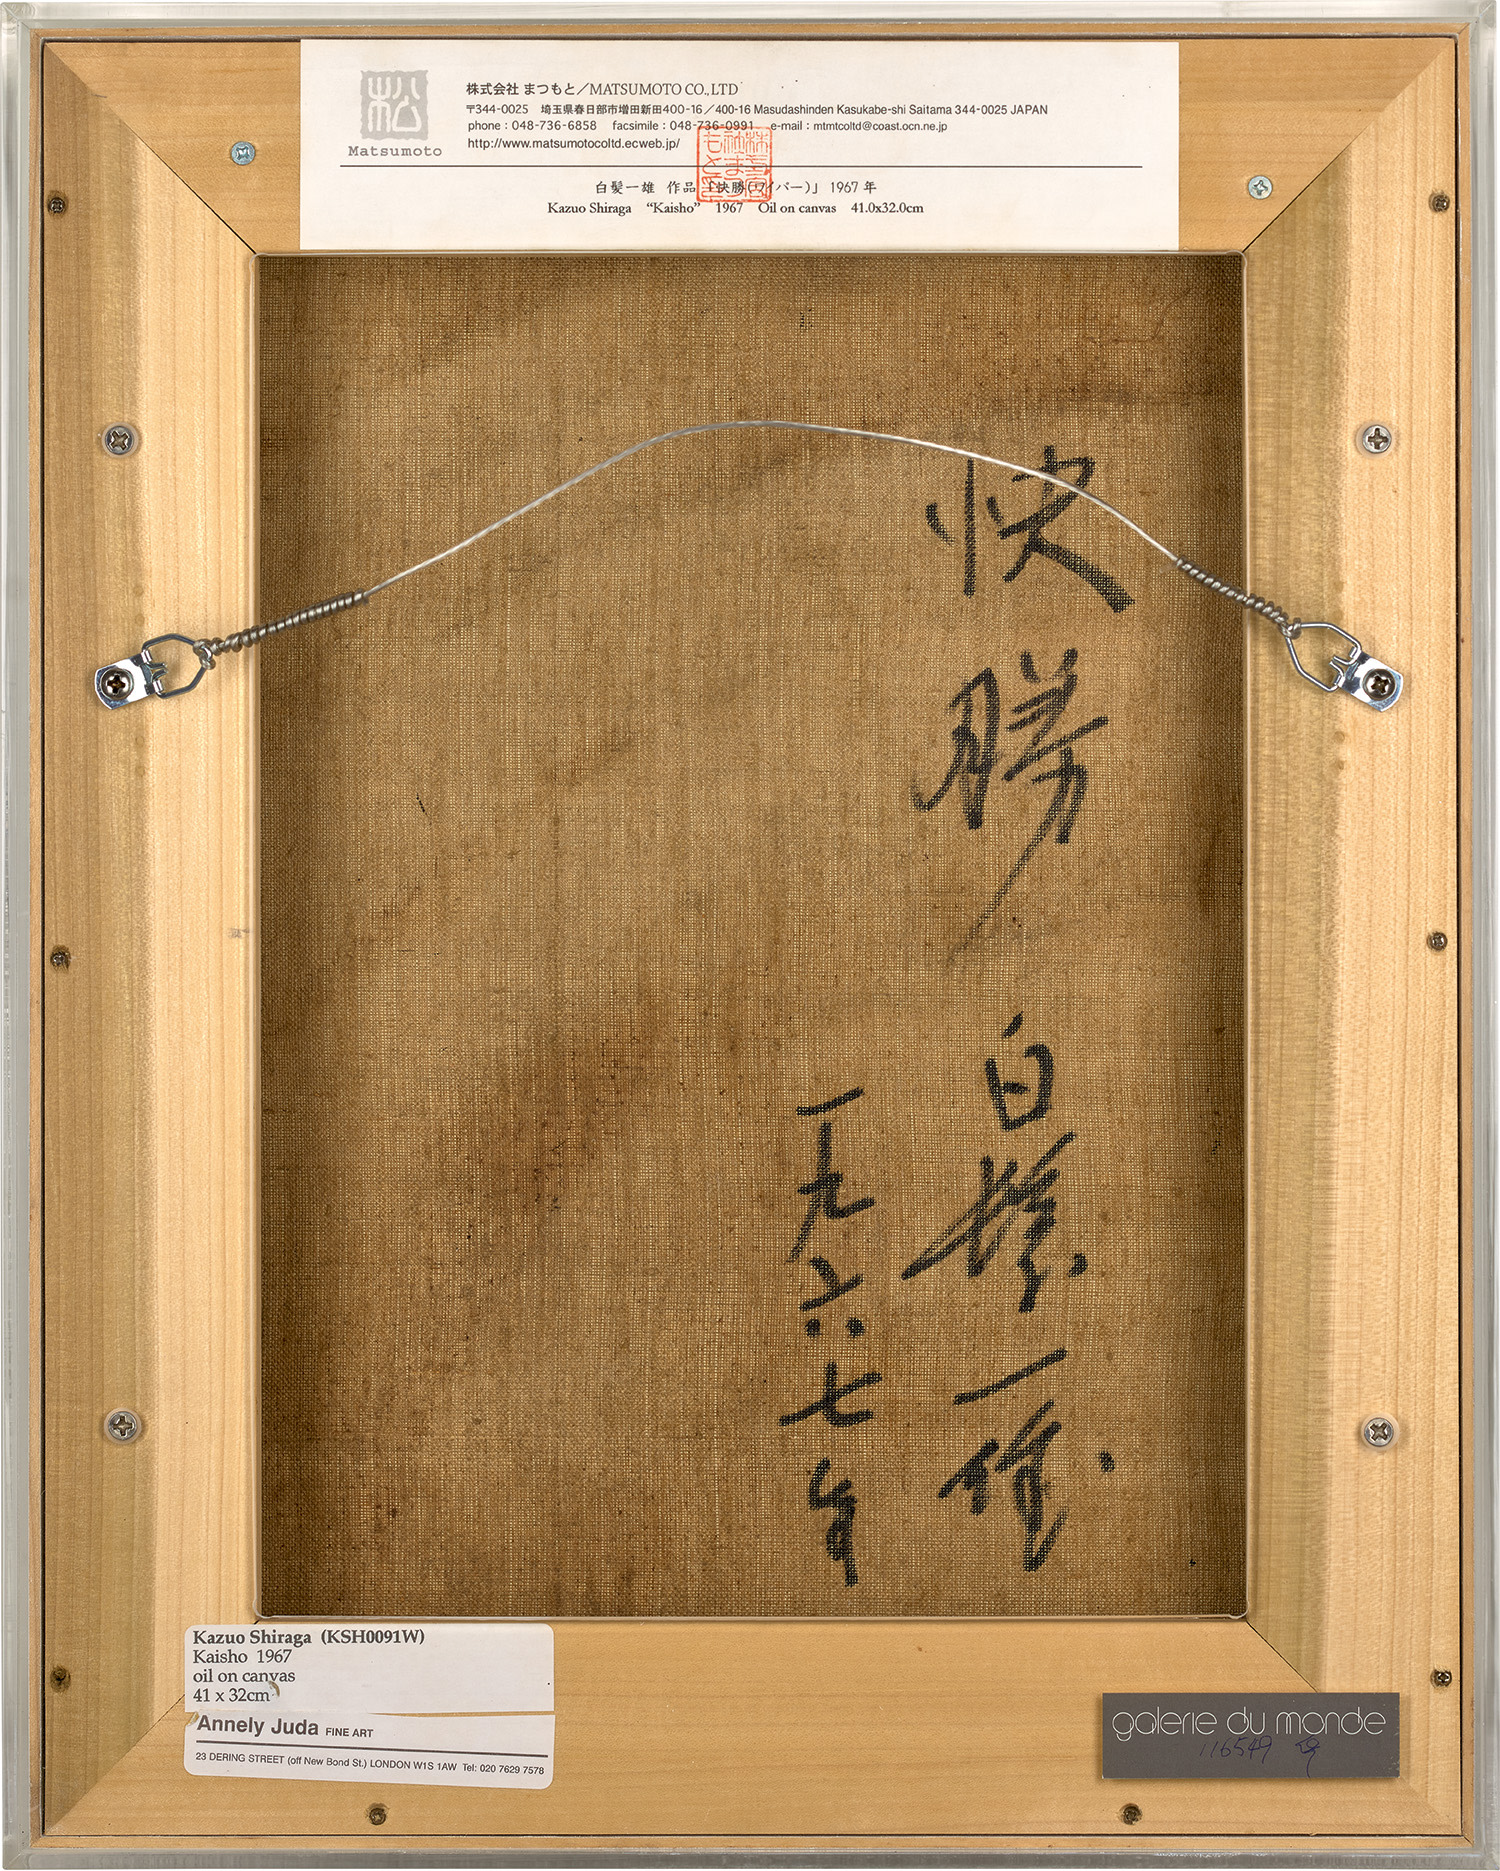 松
Matsumoto
株式会社 まつもと／MATSUMOTO CO.,LTD
〒344-0025 埼玉県春日部市増田新田400-16／400-16 Masudashinden Kasukabe-shi Saitama 344-0025 JAPAN
phone：048-736-6858 facsimile：048-736-0991 e-mail：mtmtcoltd@coast.ocn.ne.jp
http://www.matsumotocoltd.ecweb.jp/
白髪一雄 作品 「快勝(ワイバー)」 1967 年
Kazuo Shiraga “Kaisho” 1967 Oil on canvas 41.0x32.0cm
快勝 白髪一雄
一九六七年
Kazuo Shiraga (KSH0091W)
Kaisho 1967
oil on canvas
41 x 32cm
Annely Juda FINE ART
23 DERING STREET (off New Bond St.) LONDON W1S 1AW Tel: 020 7629 7578
galerie du monde
116549